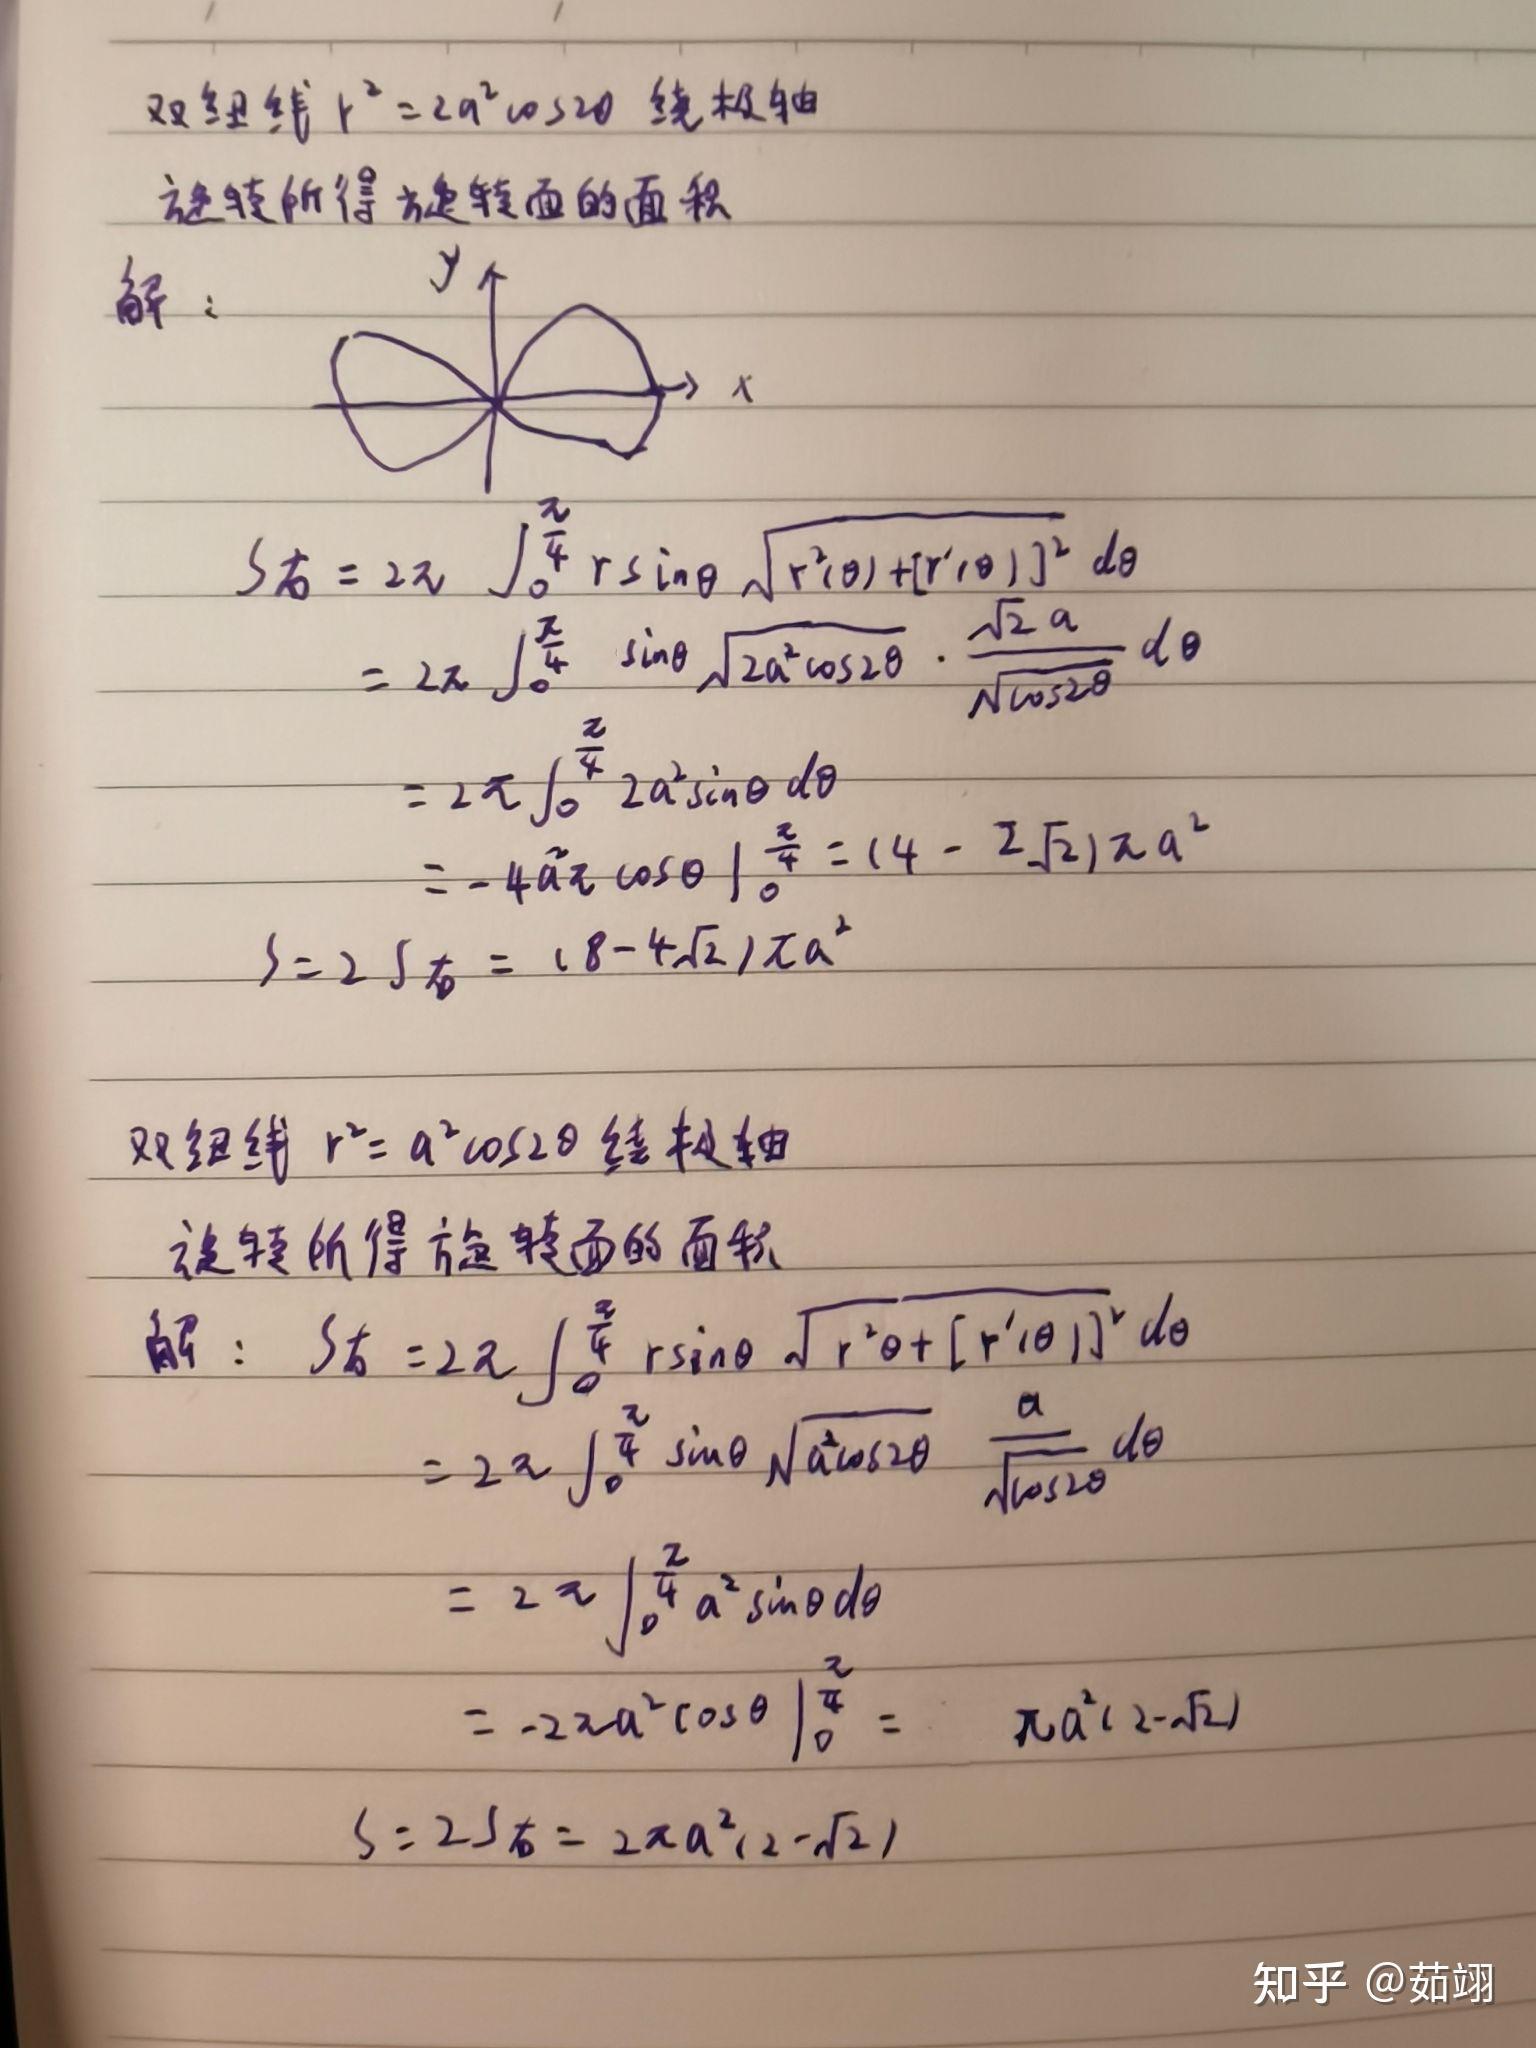 双纽线 r² = 2a²cos2θ 绕极轴
旋转所得旋转面的面积
解：
y
x
S右 = 2π ∫₀^(π/4) r sinθ √(r²(θ)+[r'(θ)]²) dθ
= 2π ∫₀^(π/4) sinθ √(2a²cos2θ) · (√2 a)/√(cos2θ) dθ
= 2π ∫₀^(π/4) 2a²sinθ dθ
= -4a²π cosθ |₀^(π/4) = (4 - 2√2)πa²
S = 2S右 = (8-4√2)πa²
双纽线 r² = a²cos2θ 绕极轴
旋转所得旋转面的面积
解： S右 = 2π ∫₀^(π/4) r sinθ √(r²θ+[r'(θ)]²) dθ
= 2π ∫₀^(π/4) sinθ √(a²cos2θ) a/√(cos2θ) dθ
= 2π ∫₀^(π/4) a²sinθdθ
= -2πa²cosθ |₀^(π/4) = πa²(2-√2)
S = 2S右 = 2πa²(2-√2)
知乎 @茹翊